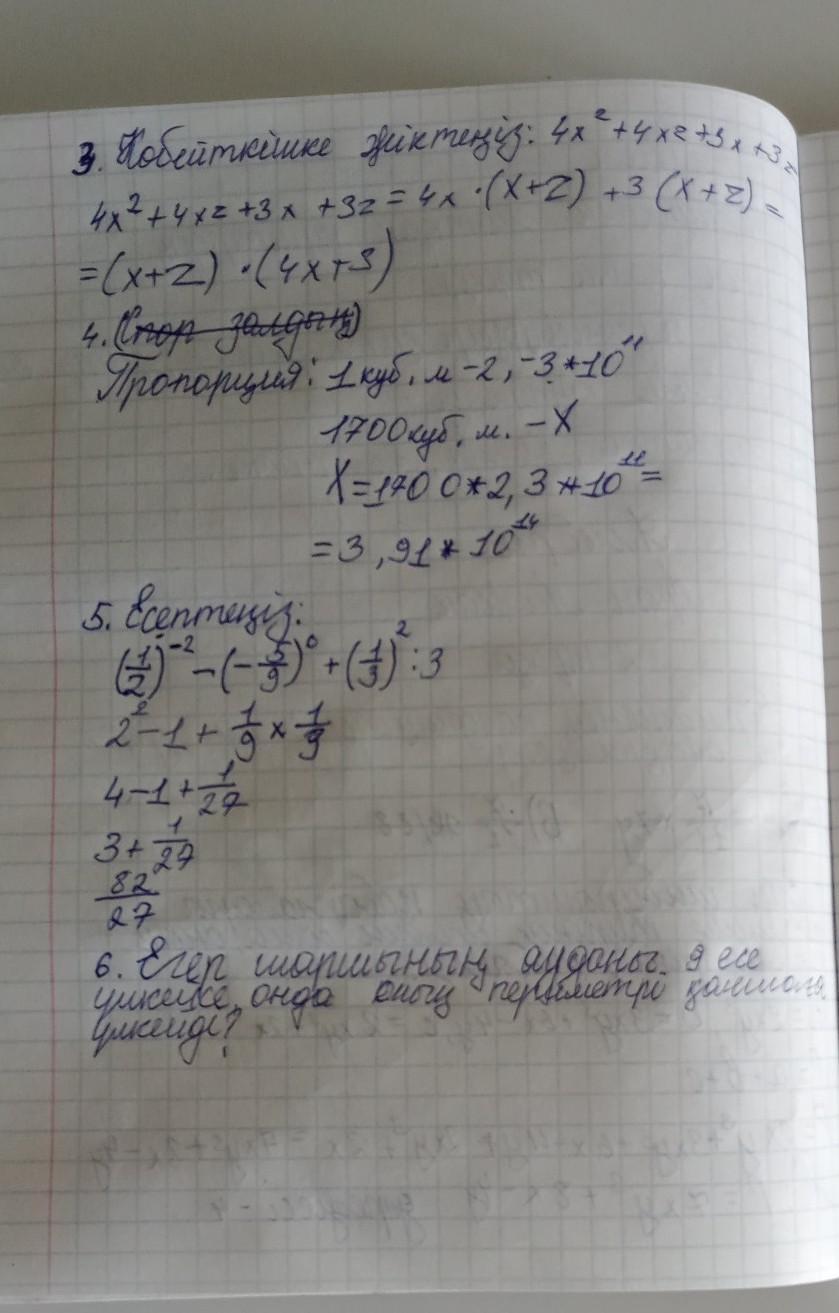 3. Көбейткішке жіктеңіз: 4x² + 4xz + 3x + 3z
4x² + 4xz + 3x + 3z = 4x · (x+z) + 3 (x+z) =
= (x+z) · (4x+3)
4. (Спорт залдың)
Пропорция: 1 куб. м - 2, -3 * 10¹¹
1700 куб. м. - X
X = 1700 * 2,3 * 10¹¹ =
= 3,91 * 10¹⁴
5. Есептеңіз:
(1/2)⁻² - (-5/9)⁰ + (1/3)² : 3
2² - 1 + 1/9 × 1/9
4 - 1 + 1/27
3 + 1/27
82/27
6. Егер шаршының ауданы 9 есе
үлкейсе, онда оның периметрі қаншаға
үлкейді?